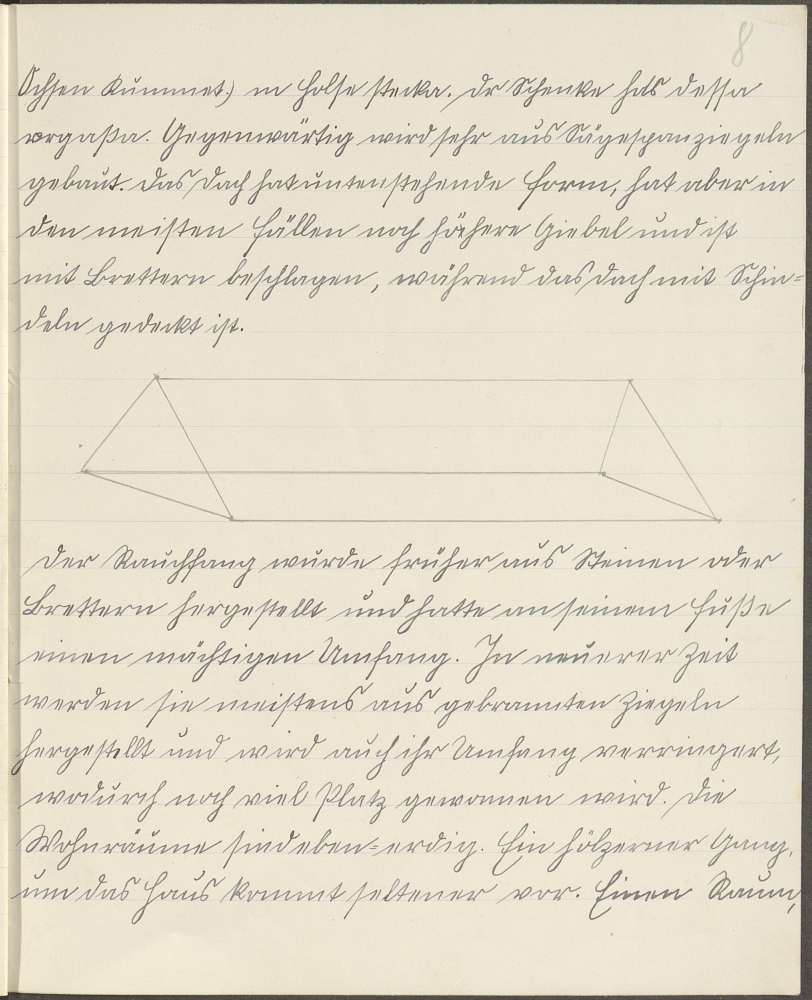 8
Ochsen Kummet.) m Holse stecka. Dr Schenke hås dessa
vrgaßa. Gegenwärtig wird sehr aus Sägespanziegeln
gebaut. Das Dach hat untenstehende Form, hat aber in
den meisten Fällen noch höhere Giebel und ist
mit Brettern beschlagen, während das Dach mit Schin=
deln gedeckt ist.
Der Rauchfang wurde früher aus Steinen oder
Brettern hergestellt und hatte an seinem Fuße
einen mächtigen Umfang. In neuerer Zeit
werden sie meistens aus gebrannten Ziegeln
hergestellt und wird auch ihr Umfang verringert,
wodurch noch viel Platz gewonnen wird. Die
Wohnräume sind eben=erdig. Ein hölzerner Gang,
um das Haus kommt seltener vor. Einen Raum,